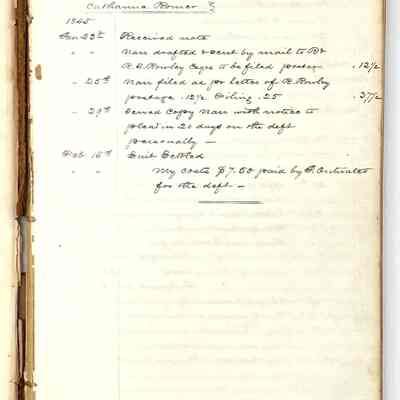 Catharina Romer
1845
Jan 23d Received note
" " Narr drafted & sent by mail to R &
R. D. Rowley Esqrs to be filed postage .12½
" 25th Narr filed as per letter of R. Rowley
postage .12½ Filing .25 .37½
" 29th Served Copy Narr with notice to
plead in 20 days on the deft
personally —
Feb 15th Suit Settled
" " My costs $7.50 paid by
for the deft —